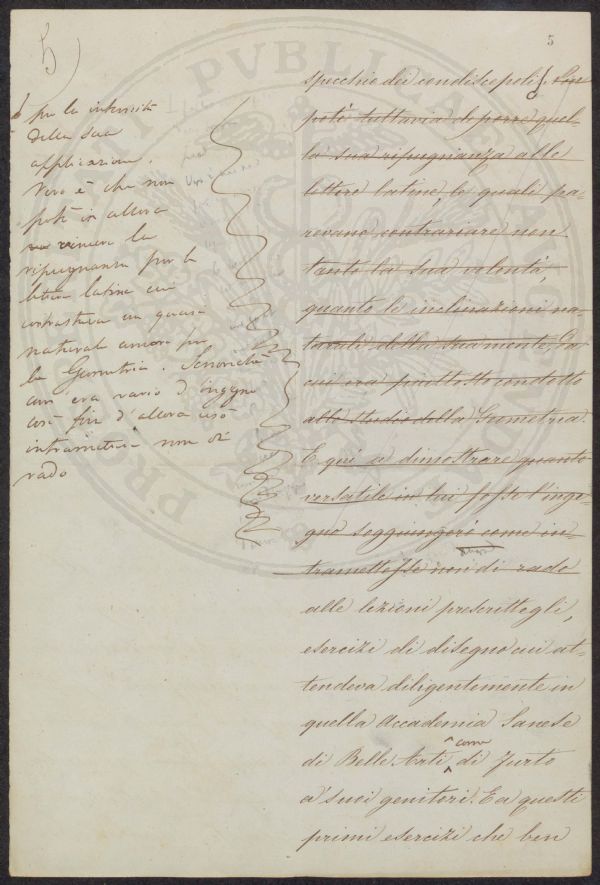 5)
5
per la intensità
della sua
applicazione.
Vero è che non
potè in allora
vincere la
ripugnanza per le
lettere latine cui
contrastava un quasi
naturale amore per
la Geometria. Sennonchè
com'era vario d'ingegno
così fin d'allora usò
intramettere non di
rado
specchio dei condiscepoli. Non
potè tuttavia di porre quel-
la sua ripugnanza alle
lettere latine, le quali pa-
revano contrariare non
tanto la sua volontà,
quanto le inclinazioni na-
turali della sua mente, da
cui era piuttosto condotto
allo studio della Geometria.
E qui a dimostrare quanto
versatile in lui fosse l'inge-
gno soggiungerò come in-
tramettesse non di rado
alle lezioni prescrittegli,
esercizi di disegno cui at-
tendeva diligentemente in
quella Accademia Sanese
come
di Belle Arti di furto
a' suoi genitori. E a questi
primi esercizi che ben
PVBLICA